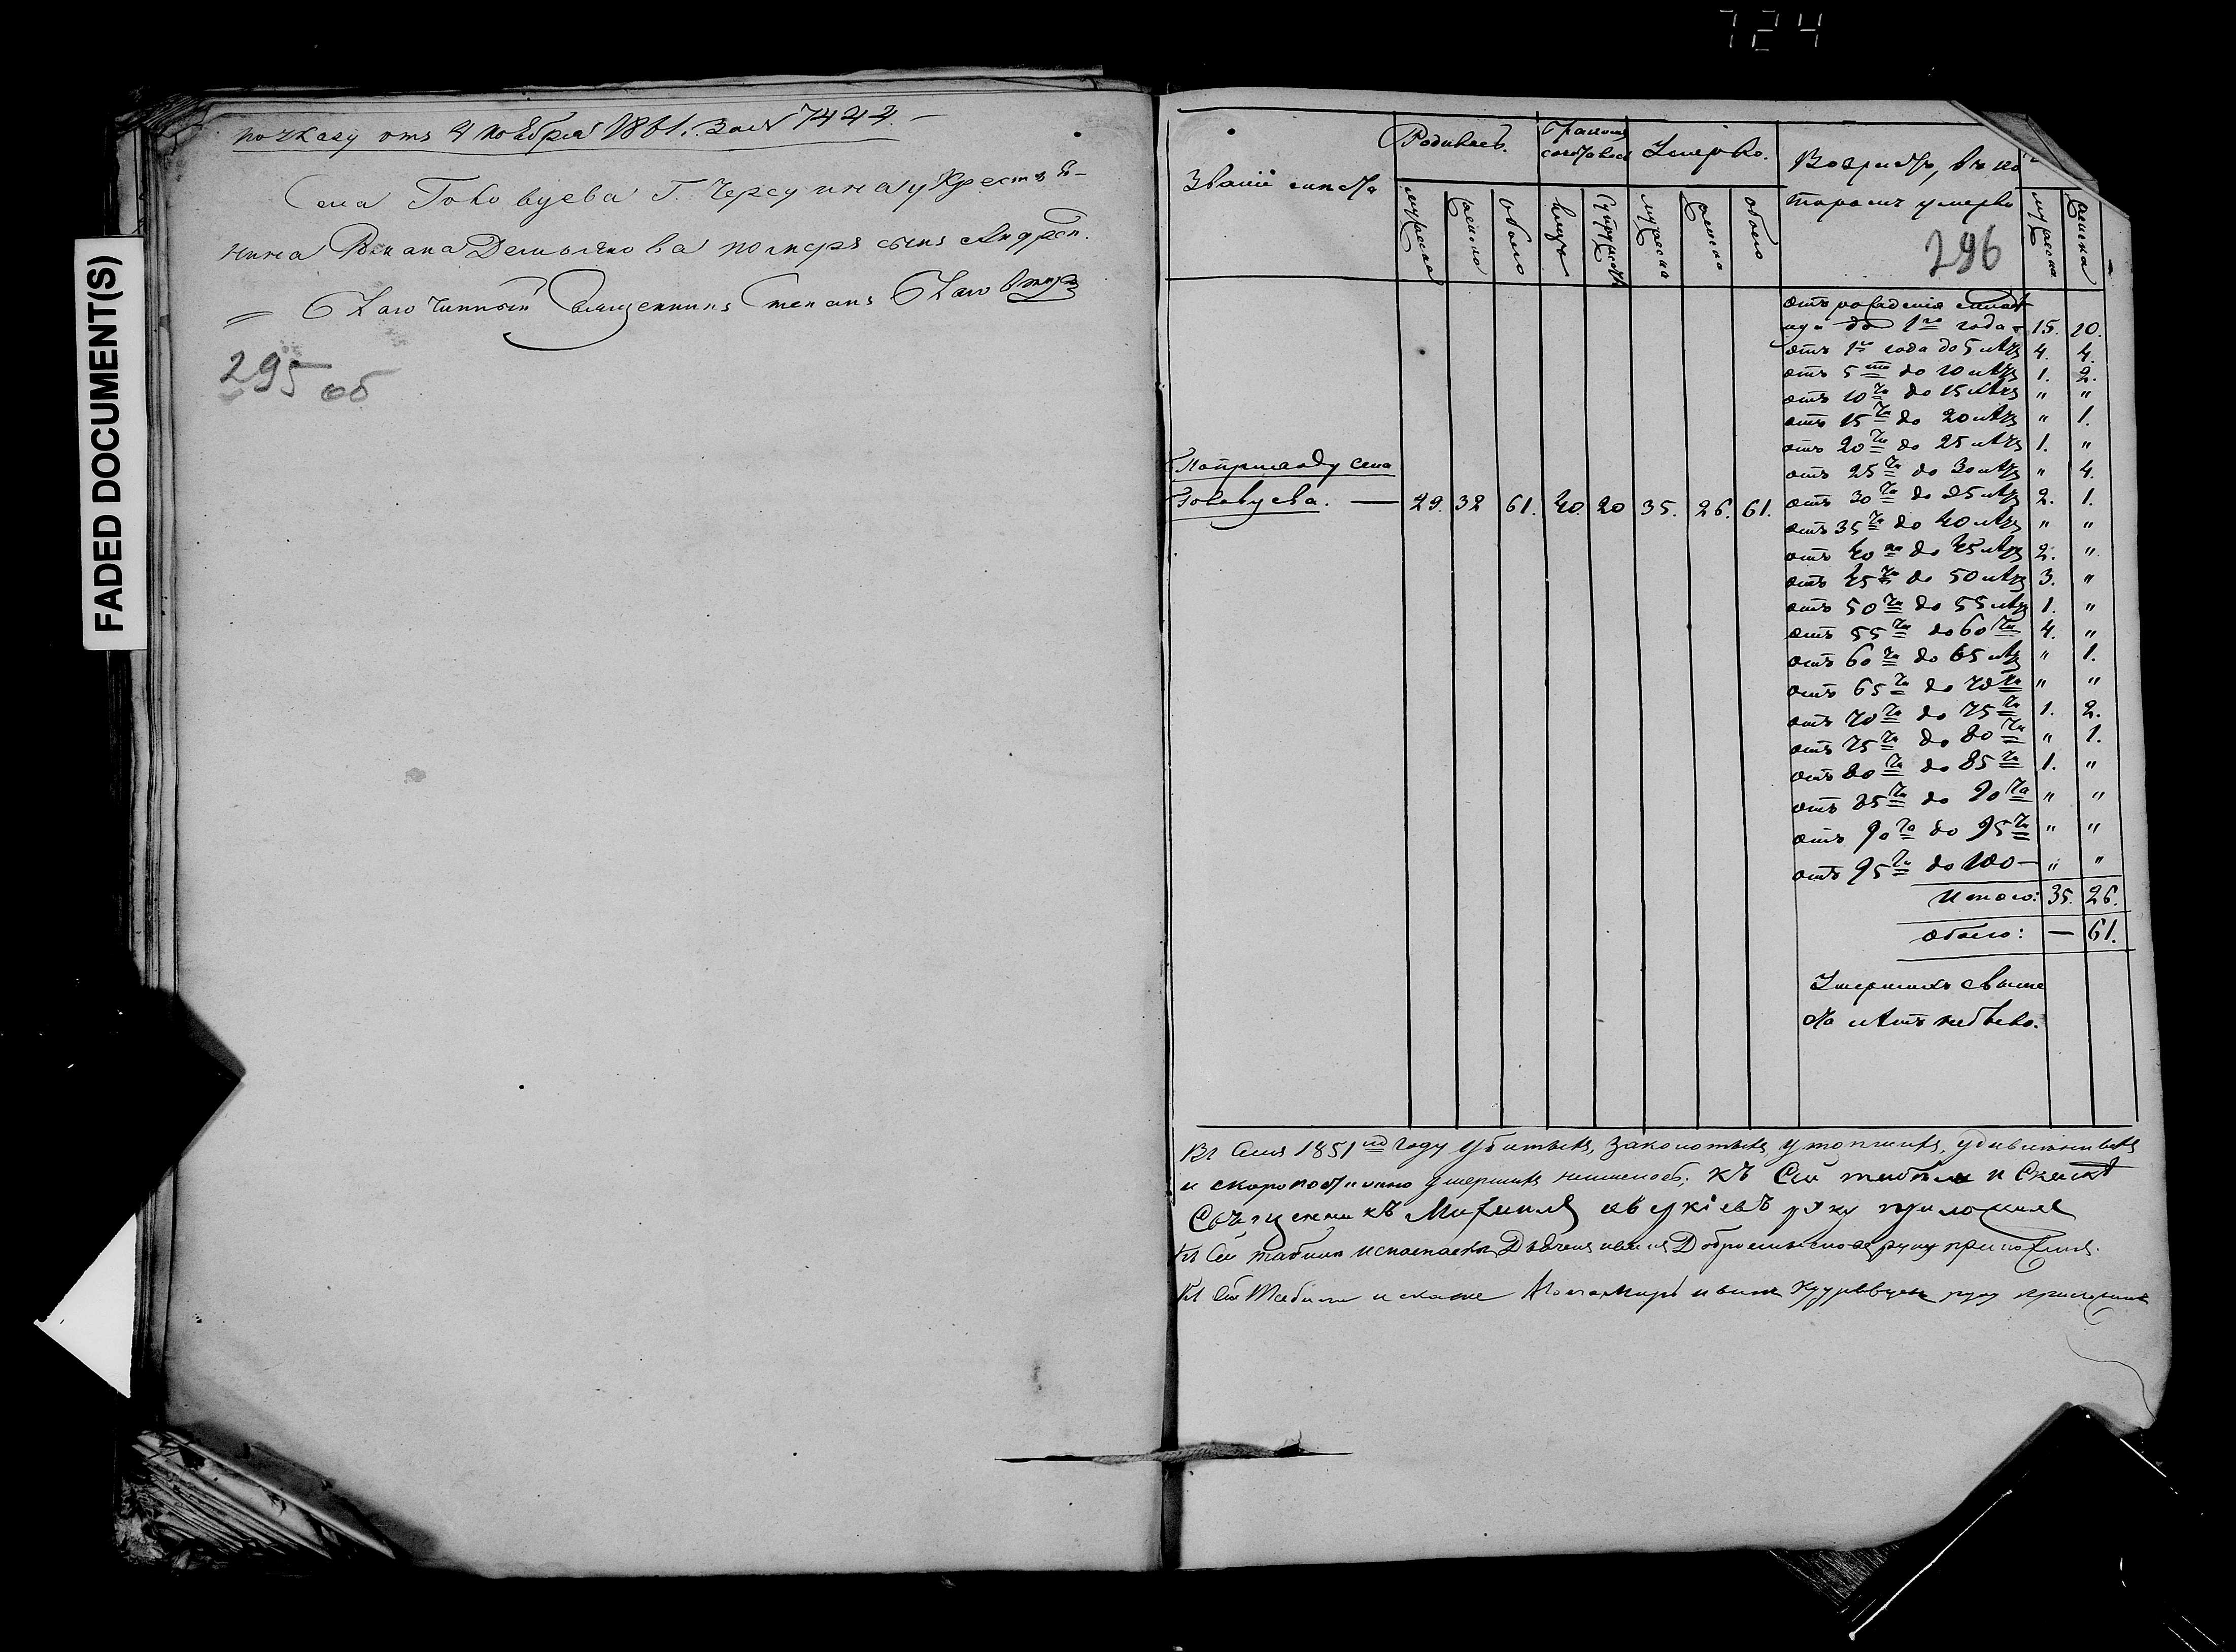 724
FADED DOCUMENT(S)
по указу отъ 4 ноября 1861. за №
Села Головуева Г. Крестья-
нина Романа померъ сынъ Андрей.
Благочинный Священникъ Стефанъ
295 об
Званіе мѣста
Родилось.
Бракомъ сочеталось
Умерло.
Возрастъ, въ ко-
торомъ умерло
мужеска женска обоего
мужеска женска обоего
мужеска женска
296
отъ рожденія
до 1го года 15. 10.
отъ 1го года до 5 лѣтъ 4. 4.
отъ 5ти до 10 лѣтъ 1. 2.
отъ 10ти до 15 лѣтъ " "
отъ 15ти до 20 лѣтъ " 1.
отъ 20ти до 25 лѣтъ 1. "
отъ 25ти до 30 лѣтъ " 4.
По приходу села
Головуева. — 29. 32 61. 20. 20 35. 26. 61.
отъ 30ти до 35 лѣтъ 2. 1.
отъ 35ти до 40 лѣтъ " "
отъ 40 до 45 лѣтъ 2. "
отъ 45ти до 50 лѣтъ 3. "
отъ 50ти до 55 лѣтъ 1. "
отъ 55ти до 60ти 4. "
отъ 60ти до 65 лѣтъ " 1.
отъ 65ти до 70ти " "
отъ 70ти до 75ти 1. 2.
отъ 75ти до 80ти " 1.
отъ 80ти до 85ти 1. "
отъ 85ти до 90та " "
отъ 90та до 95ти " "
отъ 95ти до 100 — " "
Итого: 35. 26.
обоего: — 61.
Умершихъ свыше
ста лѣтъ небыло.
Въ Семъ 1851мъ году убитыхъ, заколотыхъ, утопшихъ, удавившихся
и скоропостижно умершихъ неимелось. Къ Сей табели и Сказкѣ
Священникъ Михаилъ руку приложилъ
Къ Сей табели и сказкѣ Дьяченъ руку приложилъ.
Къ Сей Табели и сказке Пономарь руку приложилъ